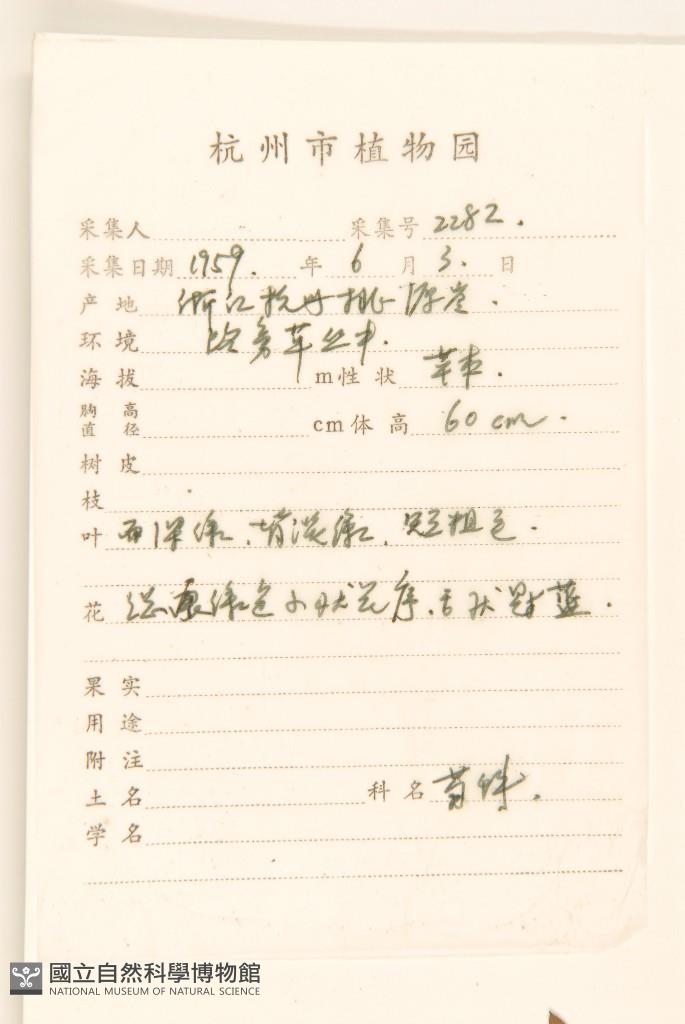 杭州市植物园
采集人 采集号 2282.
采集日期 1959. 年 6 月 3. 日
产地 浙江杭州桃源岭.
环境 路旁草丛中.
海拔 m 性状 草本.
胸高直径 cm 体高 60 cm.
树皮
枝
叶 面深绿、背淡绿、
花 绿色 状花序、舌状 蓝.
果实
用途
附注
土名 科名 菊科.
学名
國立自然科學博物館
NATIONAL MUSEUM OF NATURAL SCIENCE